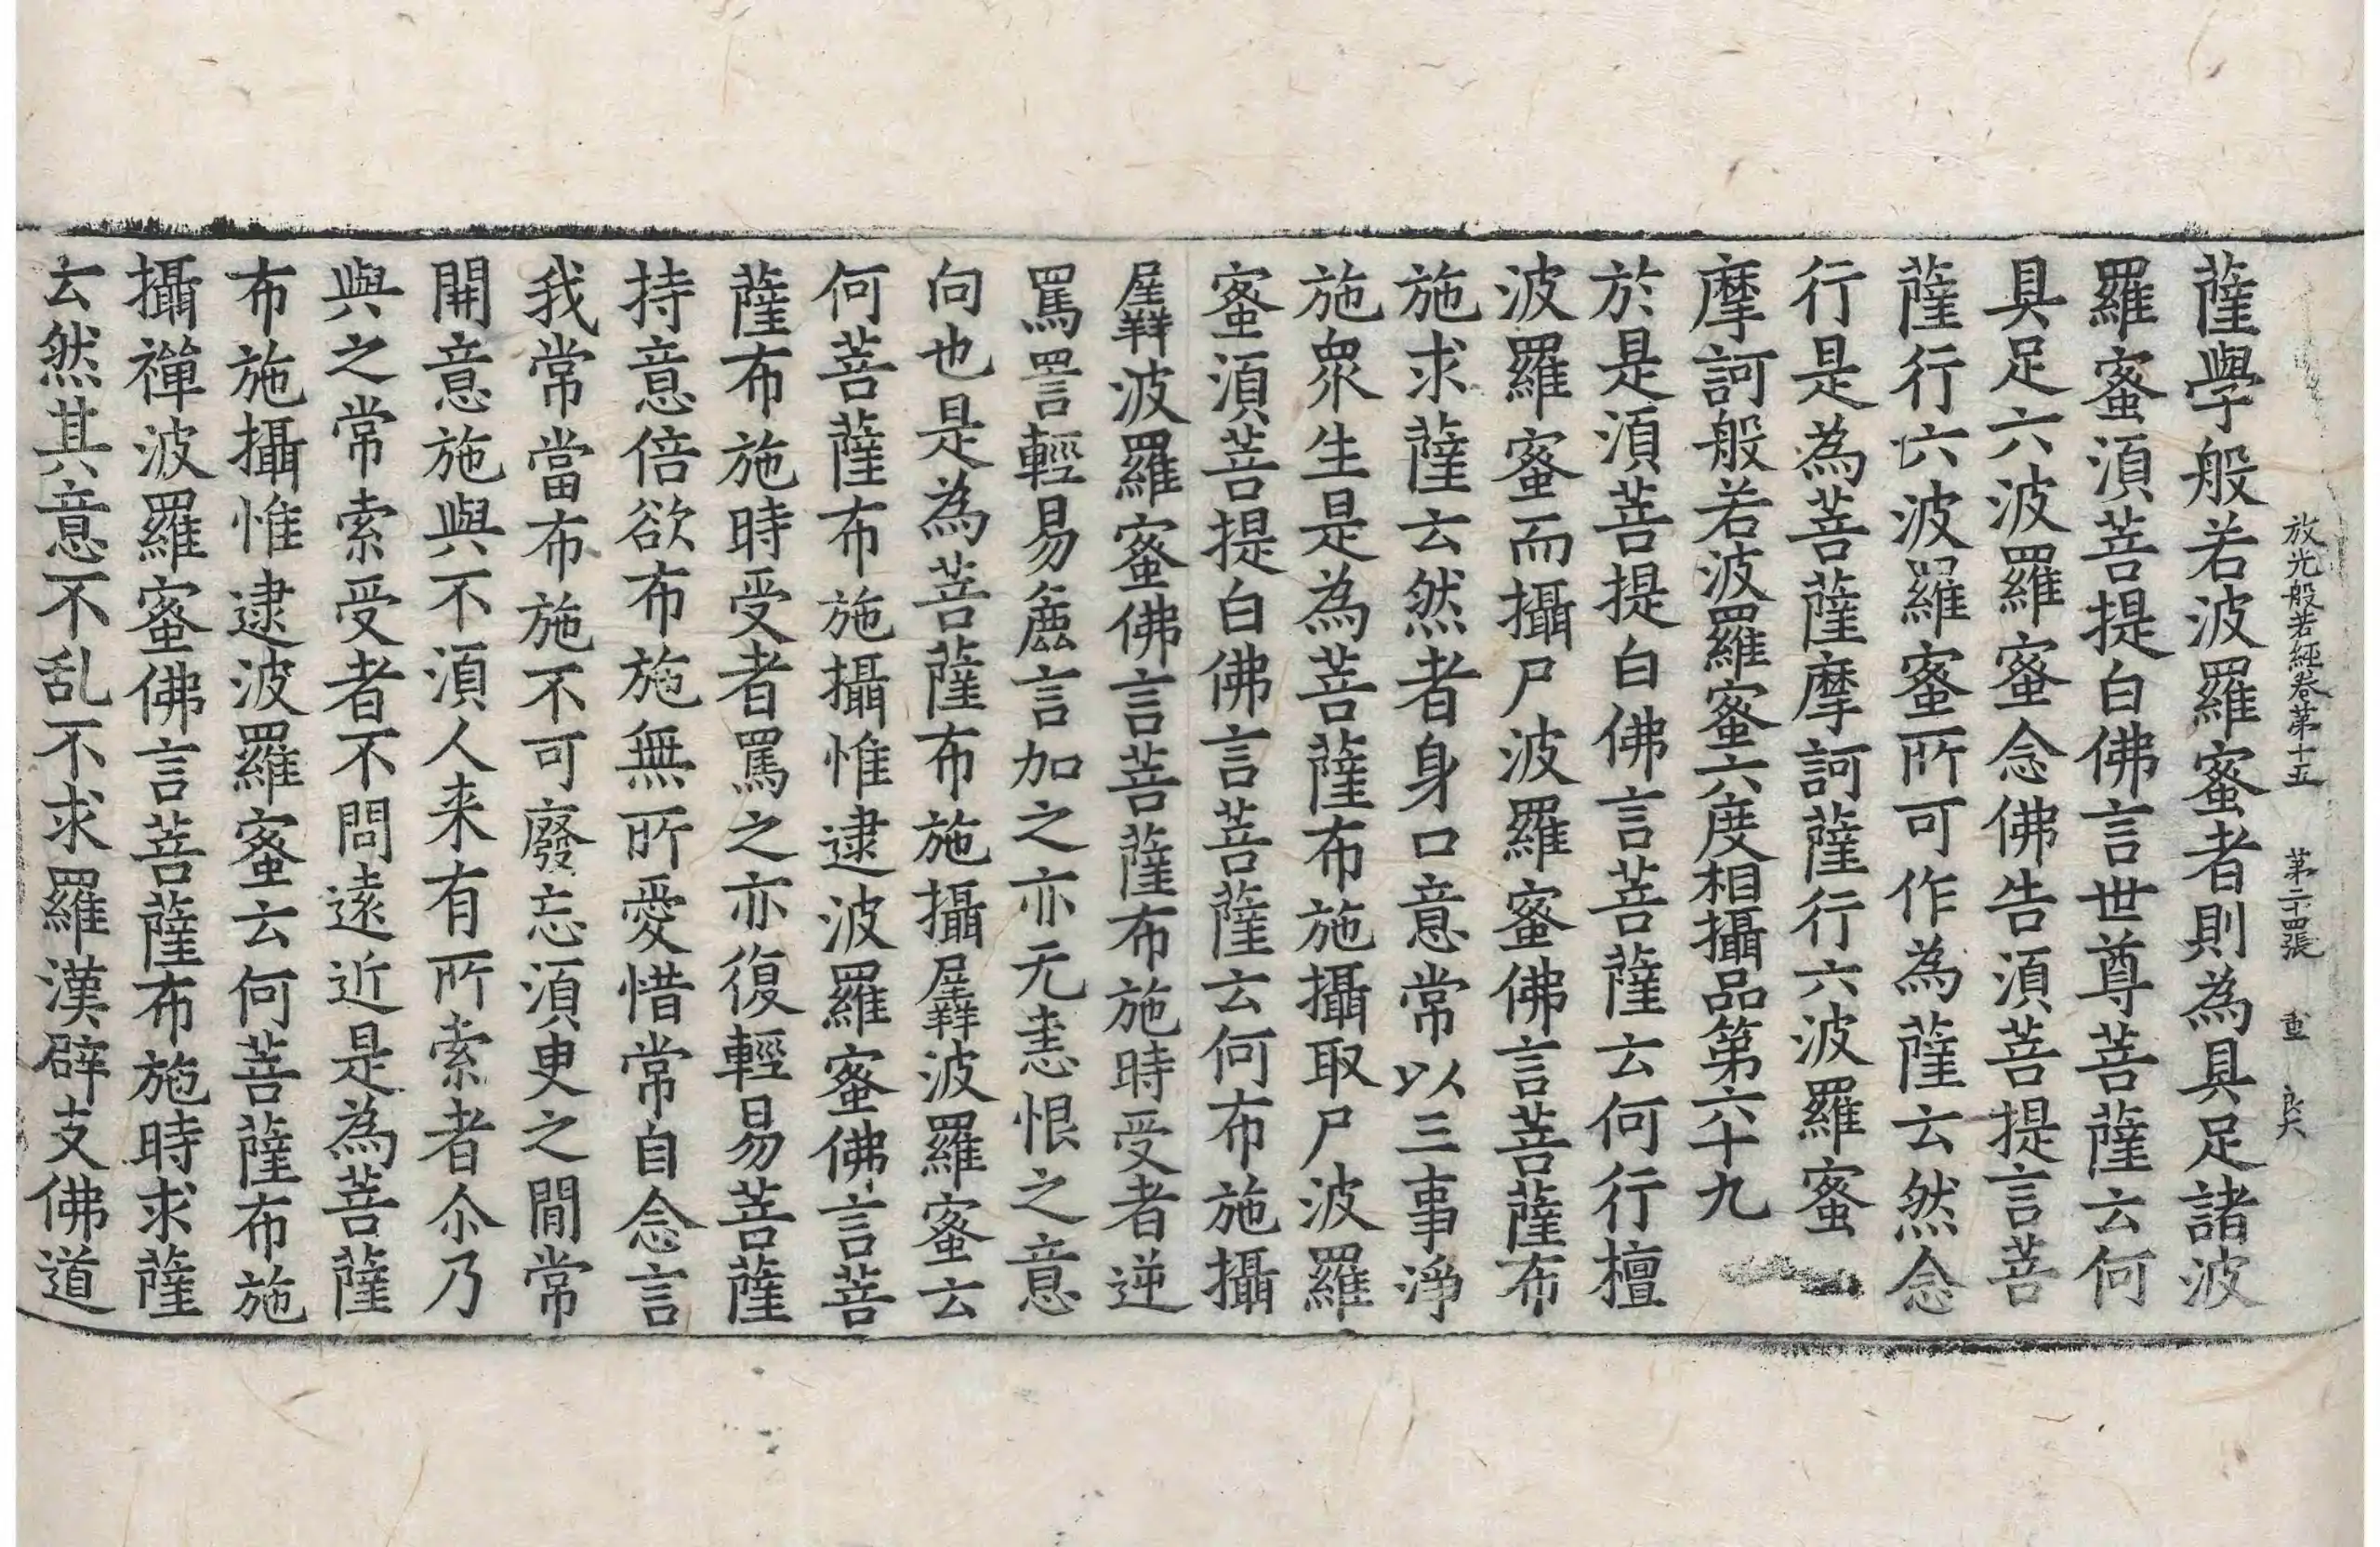 放光般若經卷第十五　第二十四張　重　良犬
薩學般若波羅蜜者則為具足諸波
羅蜜須菩提白佛言世尊菩薩云何
具足六波羅蜜念佛告須菩提言菩
薩行六波羅蜜所可作為薩云然念
行是為菩薩摩訶薩行六波羅蜜
摩訶般若波羅蜜六度相攝品第六十九
於是須菩提白佛言菩薩云何行檀
波羅蜜而攝尸波羅蜜佛言菩薩布
施求薩云然者身口意常以三事淨
施衆生是為菩薩布施攝取尸波羅
蜜須菩提白佛言菩薩云何布施攝
羼波羅蜜佛言菩薩布施時受者逆
罵詈輕易麁言加之亦无恚恨之意
向也是為菩薩布施攝羼波羅蜜云
何菩薩布施攝惟逮波羅蜜佛言菩
薩布施時受者罵之亦復輕易菩薩
持意倍欲布施無所愛惜常自念言
我常當布施不可廢忘須臾之閒常
開意施與不須人来有所索者尒乃
與之常索受者不問遠近是為菩薩
布施攝惟逮波羅蜜云何菩薩布施
攝禪波羅蜜佛言菩薩布施時求薩
云然其意不乱不求羅漢辟支佛道